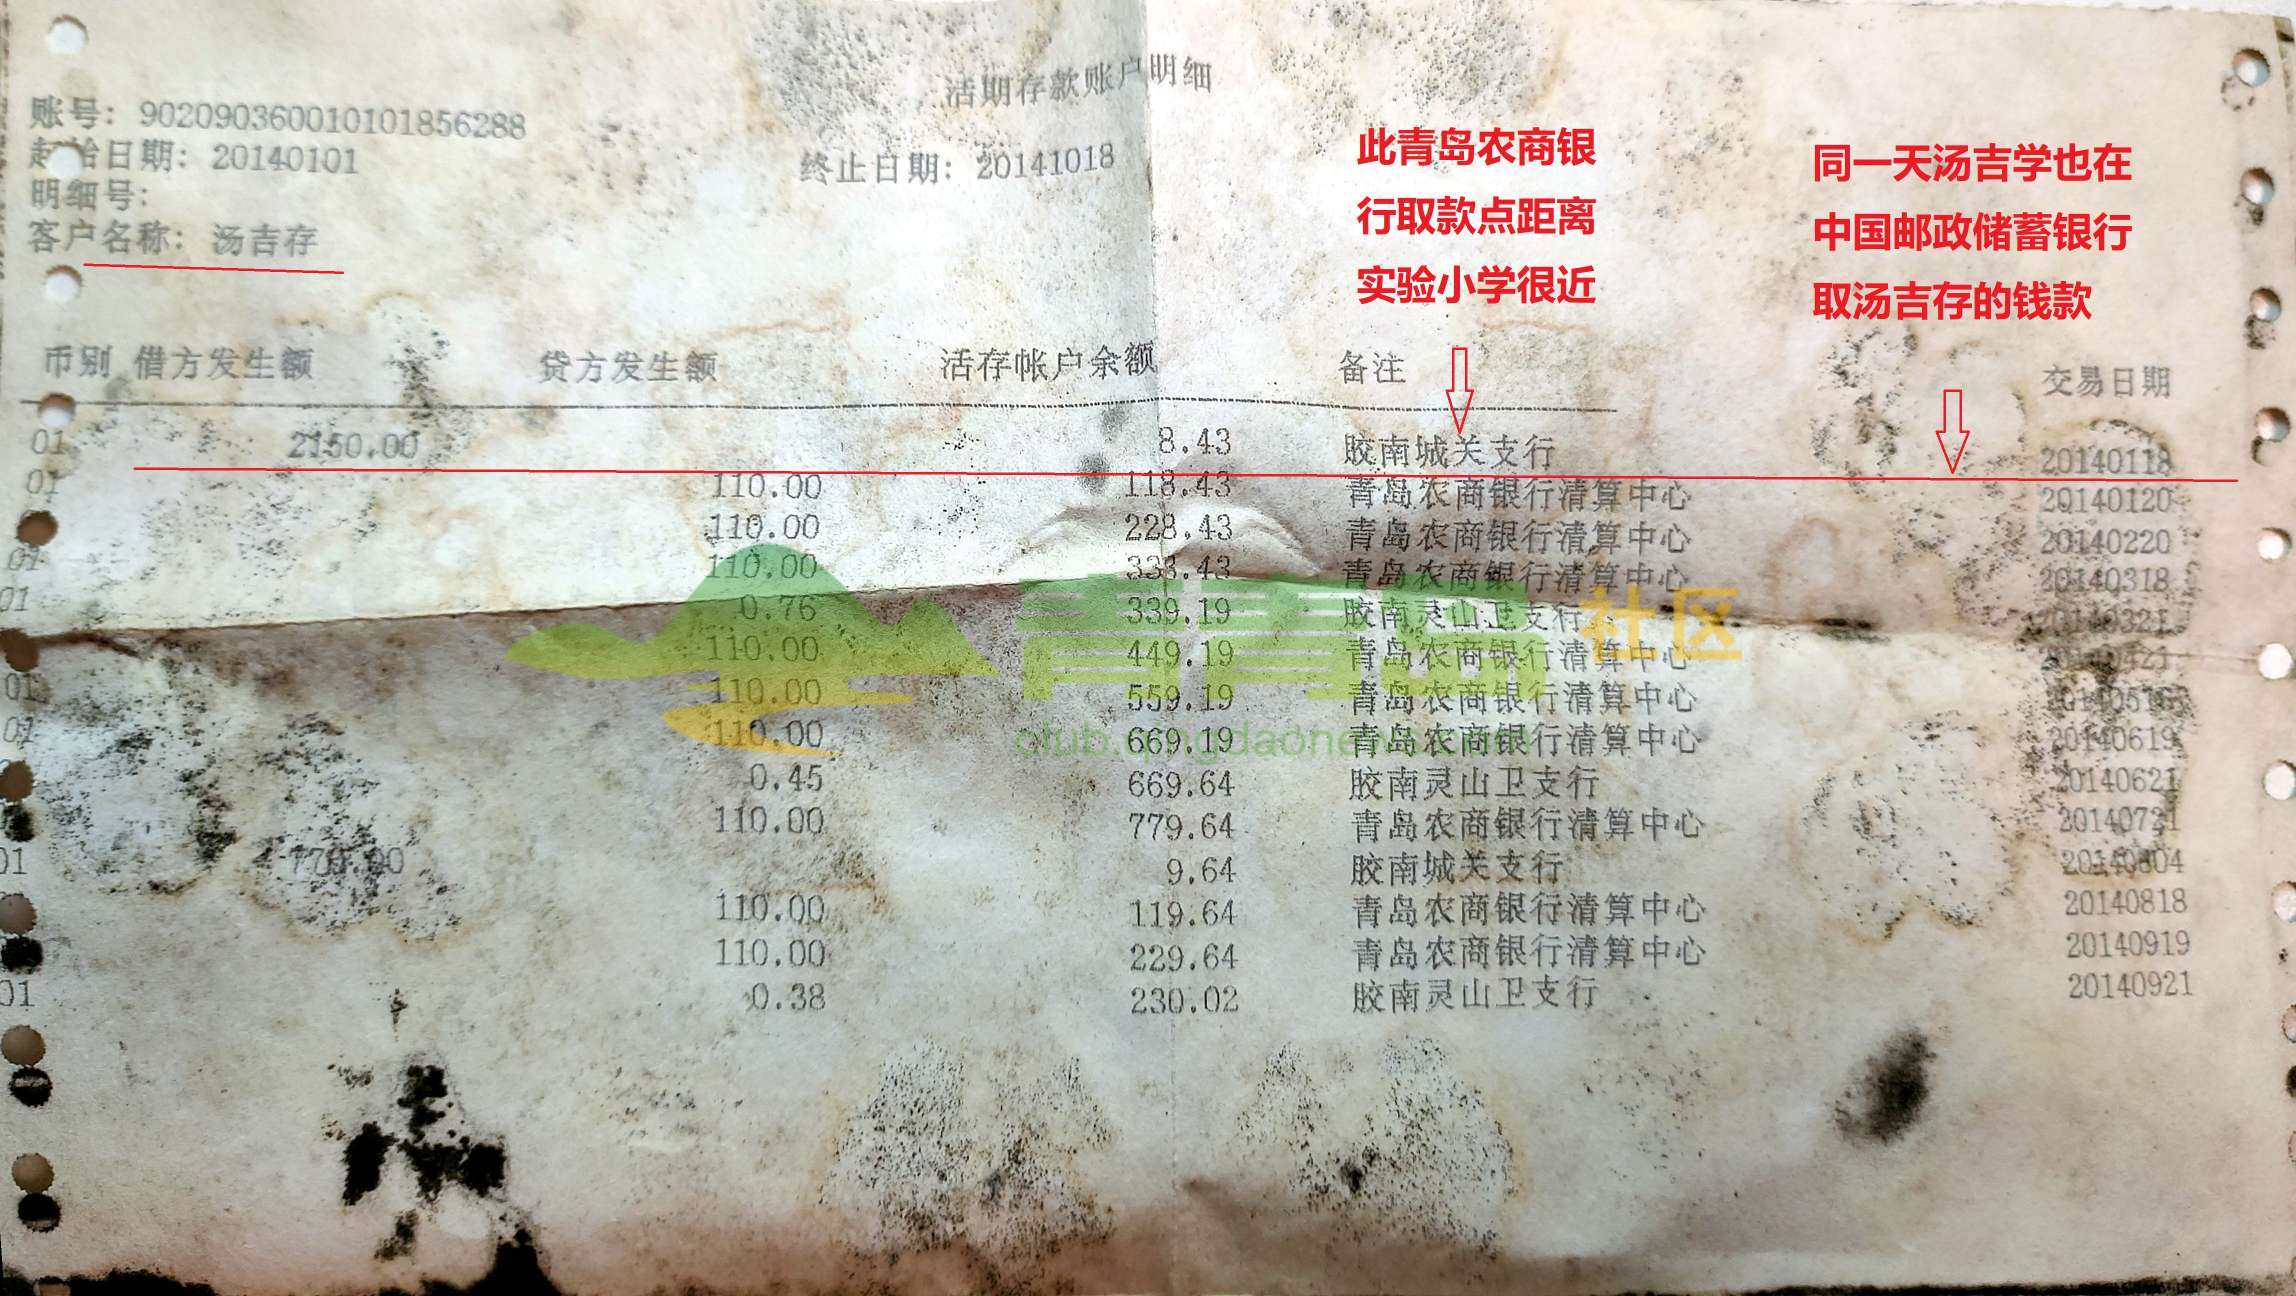 活期存款账户明细
账号: 9020903600010101856288
起始日期: 20140101
终止日期: 20141018
明细号:
客户名称: 汤吉存
此青岛农商银
行取款点距离
实验小学很近
同一天汤吉学也在
中国邮政储蓄银行
取汤吉存的钱款
币别 借方发生额 贷方发生额 活存帐户余额 备注 交易日期
01 2150.00 8.43 胶南城关支行 20140118
01 110.00 118.43 青岛农商银行清算中心 20140120
110.00 228.43 青岛农商银行清算中心 20140220
01 110.00 333.43 青岛农商银行清算中心 20140318
01 0.76 339.19 胶南灵山卫支行 20140321
110.00 449.19 青岛农商银行清算中心
01 110.00 559.19 青岛农商银行清算中心
01 110.00 669.19 青岛农商银行清算中心 20140619
0.45 669.64 胶南灵山卫支行 20140621
110.00 779.64 青岛农商银行清算中心 20140721
01 770.00 9.64 胶南城关支行 20140804
110.00 119.64 青岛农商银行清算中心 20140818
110.00 229.64 青岛农商银行清算中心 20140919
01 0.38 230.02 胶南灵山卫支行 20140921
青青岛 社区
club.qingdaonews.com